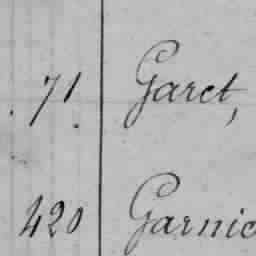 71 Garet,
420 Garnic